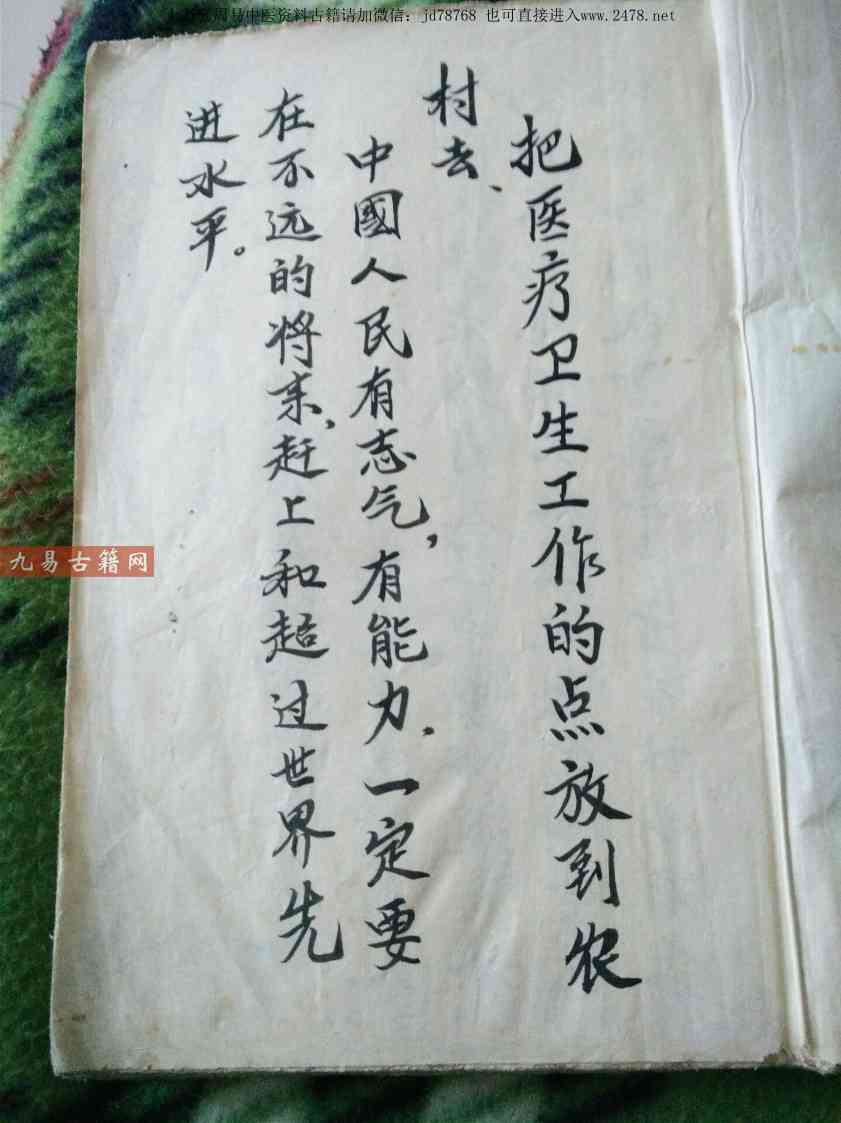 周易中医资料古籍请加微信：jd78768 也可直接进入www.2478.net
把医疗卫生工作的点放到农
村去、
中國人民有志气，有能力、一定要
在不远的将来，赶上和超过世界先
进水平。
九易古籍网